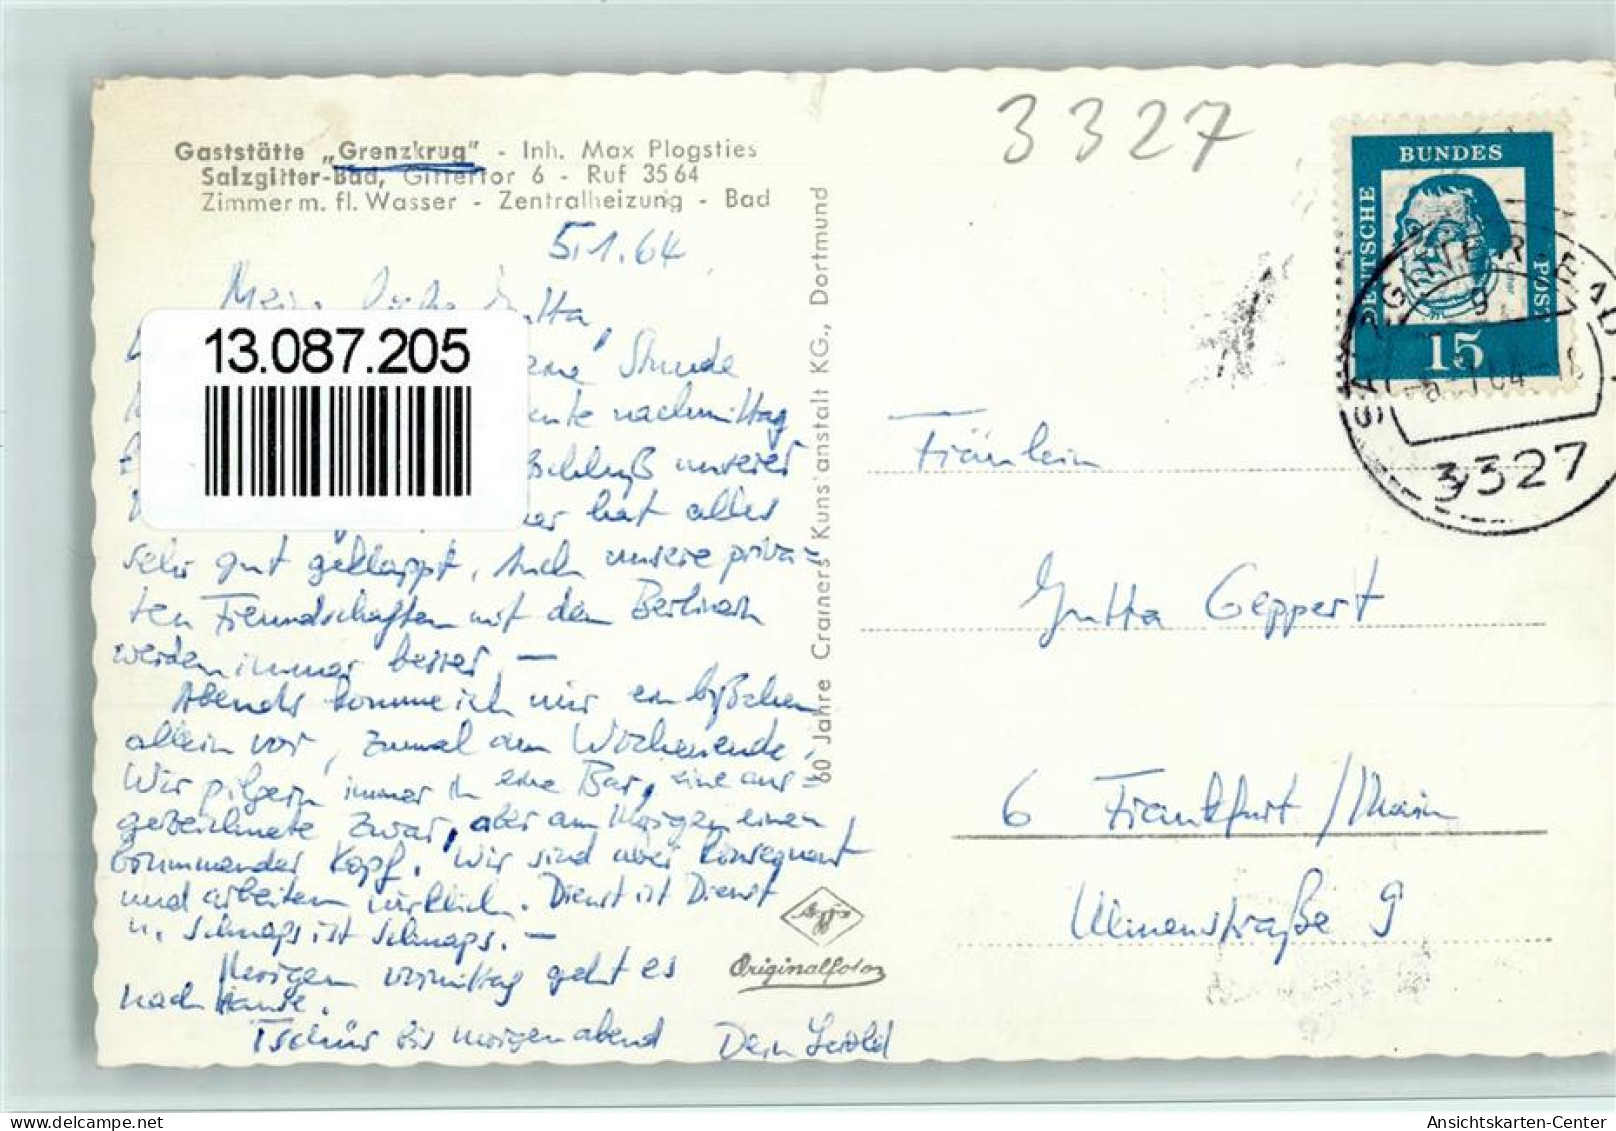 Gaststätte „Grenzkrug" - Inh. Max Plogsties
Salzgitter-Bad, Gittertor 6 - Ruf 35 64
Zimmer m. fl. Wasser - Zentralheizung - Bad
5.1.64
Jutta,
13.087.205
Stunde
nachmittag
unserer
hat alles
sehr gut geklappt. Auch unsere priva=
ten Freundschaften mit den Berlinern
werden immer besser. —
Abends komme ich mir ein bißchen
allein vor, zumal am Wochenende.
Wir pilgern immer in eine Bar, eine aus=
gezeichnete zwar, aber am Morgen einen
brummenden Kopf. Wir sind aber konsequent
und arbeiten wirklich. Dienst ist Dienst
u. Schnaps ist Schnaps. —
Morgen vormittag geht es
nach Hause.
Tschüs bis morgen abend
Dein
60 Jahre Cramers Kunstanstalt KG., Dortmund
Agfa
Originalfoto
3327
DEUTSCHE
BUNDES
POST
15
SALZGITTER-BAD
3327
Fräulein
Jutta Geppert
6 Frankfurt/Main
Ulmenstraße 9
Ansichtskarten-Center